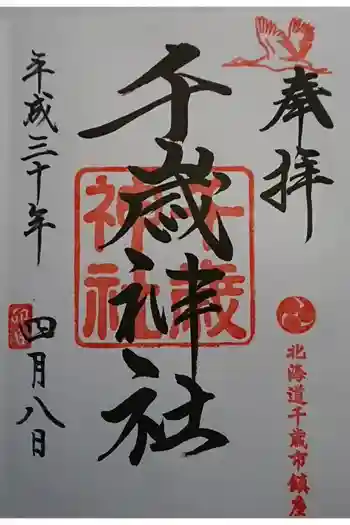 奉拝
北海道千歳市鎮座
千歳神社
千歳
神社
平成三十年
四月八日